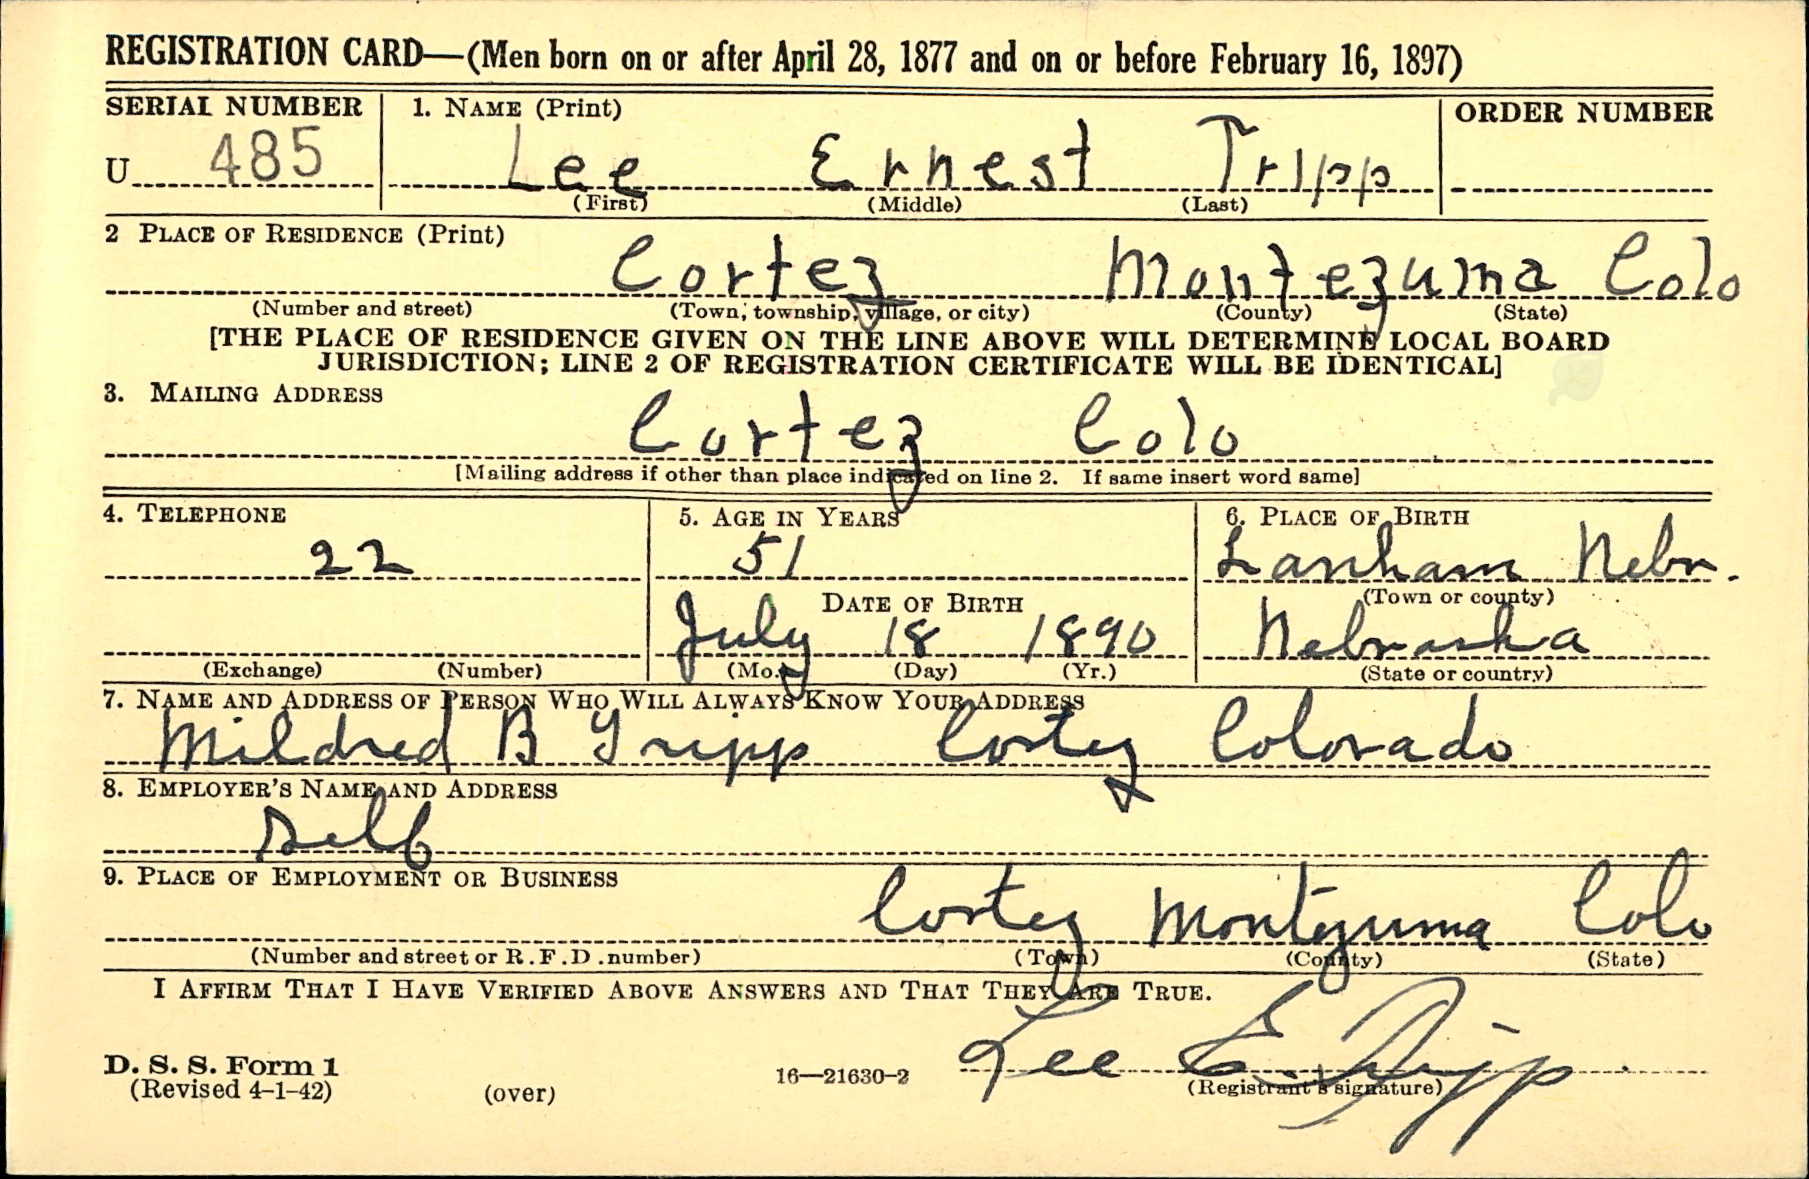 REGISTRATION CARD—(Men born on or after April 28, 1877 and on or before February 16, 1897)
SERIAL NUMBER 1. NAME (Print) ORDER NUMBER
U 485 Lee Ernest Tripp
(First) (Middle) (Last)
2 PLACE OF RESIDENCE (Print)
Cortez Montezuma Colo
(Number and street) (Town, township, village, or city) (County) (State)
[THE PLACE OF RESIDENCE GIVEN ON THE LINE ABOVE WILL DETERMINE LOCAL BOARD
JURISDICTION; LINE 2 OF REGISTRATION CERTIFICATE WILL BE IDENTICAL]
3. MAILING ADDRESS
Cortez Colo
[Mailing address if other than place indicated on line 2. If same insert word same]
4. TELEPHONE 5. AGE IN YEARS 6. PLACE OF BIRTH
22 51 Lanham Nebr.
DATE OF BIRTH (Town or county)
July 18 1890 Nebraska
(Exchange) (Number) (Mo.) (Day) (Yr.) (State or country)
7. NAME AND ADDRESS OF PERSON WHO WILL ALWAYS KNOW YOUR ADDRESS
Mildred B Tripp Cortez Colorado
8. EMPLOYER'S NAME AND ADDRESS
self
9. PLACE OF EMPLOYMENT OR BUSINESS
Cortez Montezuma Colo
(Number and street or R.F.D. number) (Town) (County) (State)
I AFFIRM THAT I HAVE VERIFIED ABOVE ANSWERS AND THAT THEY ARE TRUE.
Lee E. Tripp
D. S. S. Form 1
(Revised 4-1-42) (over) 16—21630-2 (Registrant's signature)